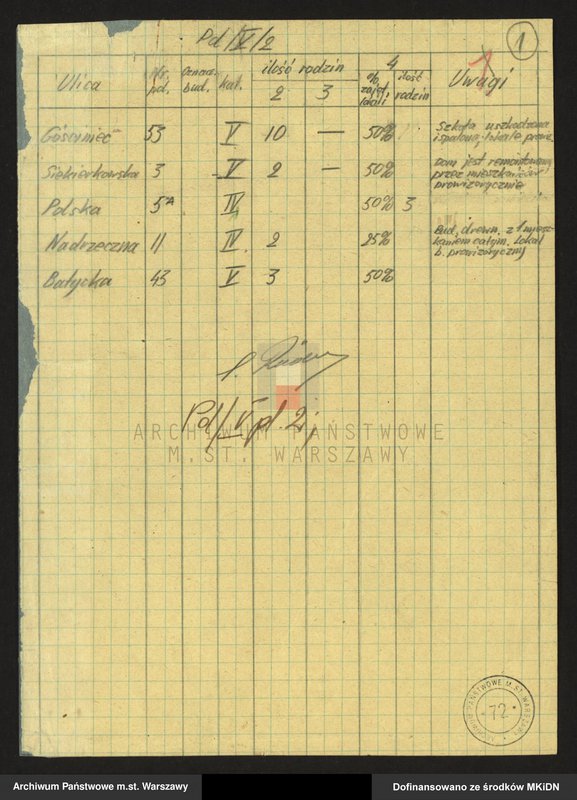 Pd/IV/2
1
Ulica Nr. pd. Oznacz. bud. kat. ilość rodzin 2 3 4 % zajęt. lokali ilość rodzin Uwagi
Gościniec 53 V 10 — 50% Szkoła uszkodzona
i spalona, lokale prowiz.
Siekierkowska 3 V 2 — 50% Dom jest remontowany
przez mieszkańców
prowizorycznie
Polska 5A IV 50% 3
Nadrzeczna 11 IV 2 25% Bud. drewn. z 1 miesz-
kaniem całym. Lokal
b. prowizoryczny
Batycka 43 V 3 50%
ARCHIWUM PAŃSTWOWE
M.ST. WARSZAWY
ARCHIWUM PAŃSTWOWE M. ST. WARSZAWY
-72-
Archiwum Państwowe m.st. Warszawy
Dofinansowano ze środków MKiDN